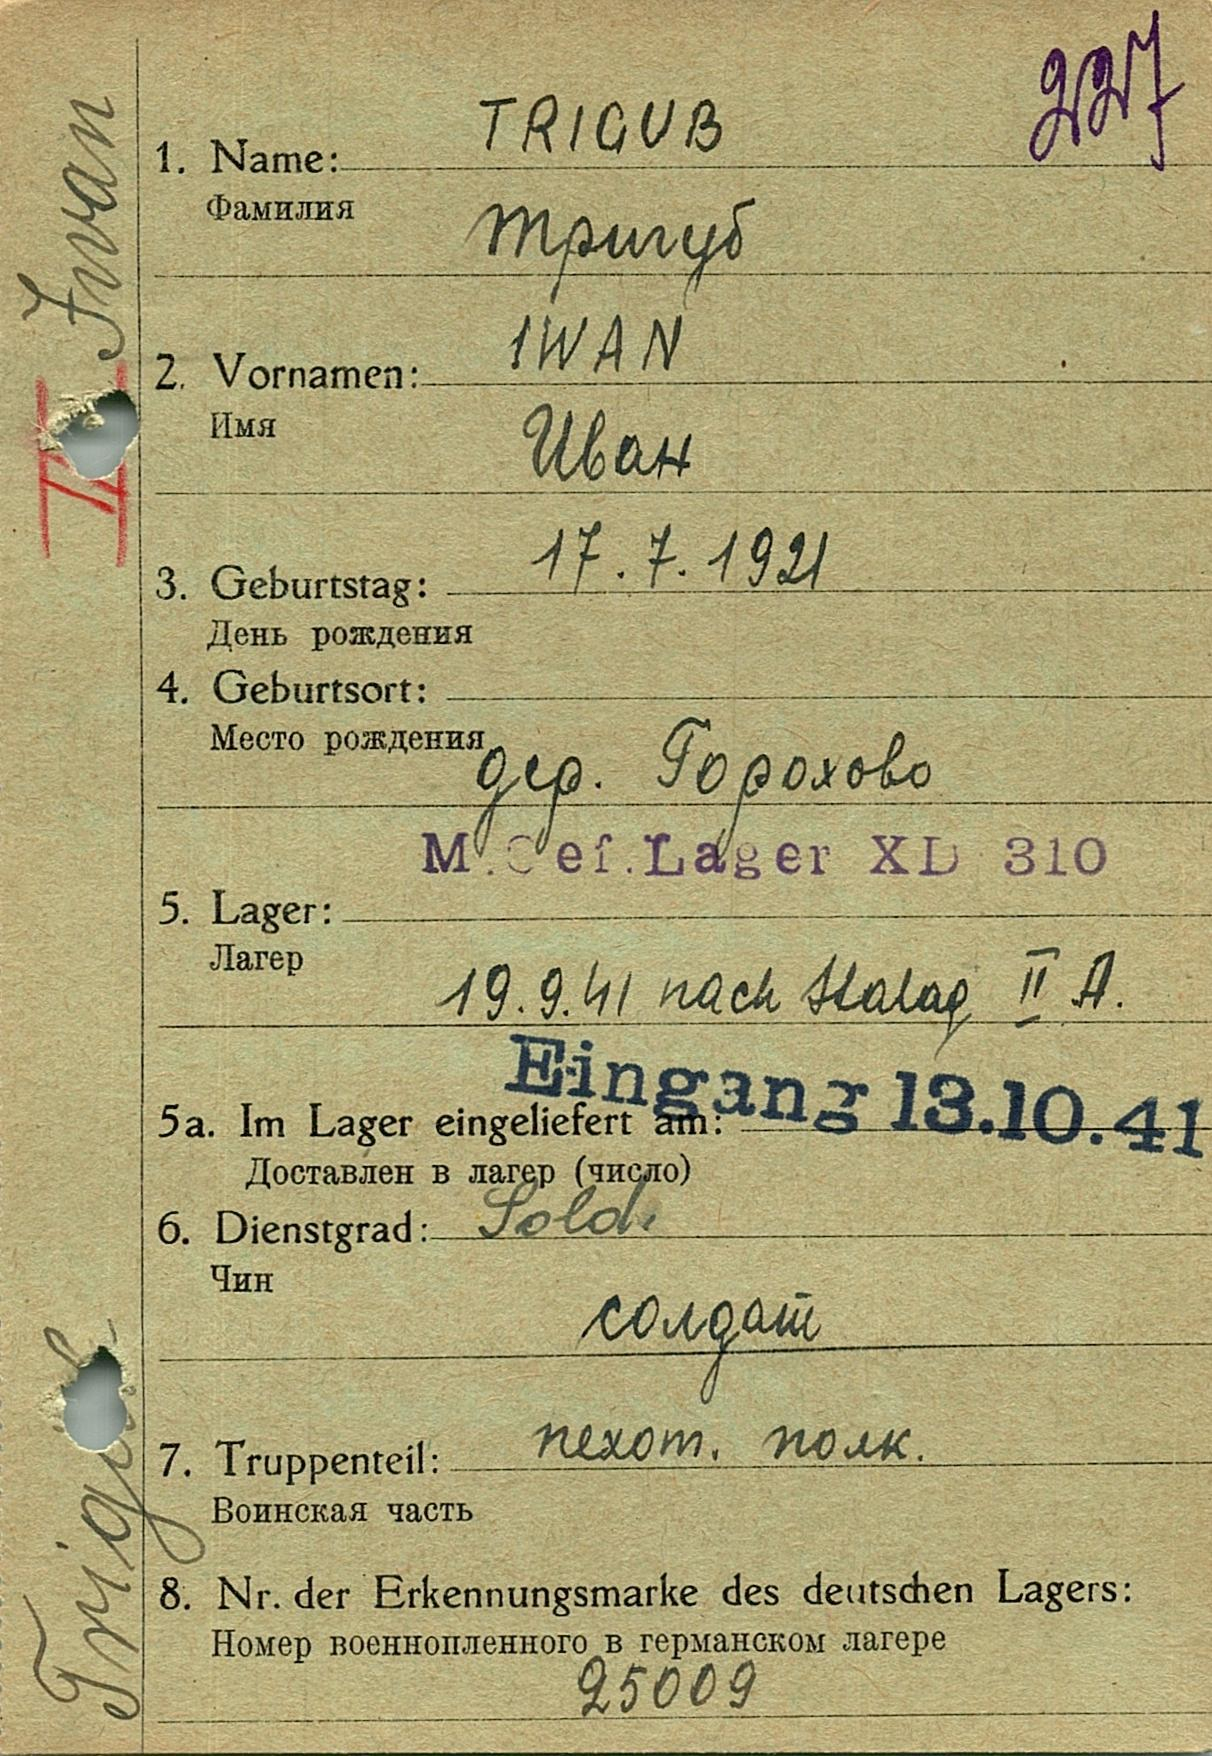 227
TRIGUB
1. Name:
Фамилия
Тригуб
IWAN
2. Vornamen:
Имя
Иван
17.7.1921
3. Geburtstag:
День рождения
4. Geburtsort:
Место рождения
дер. Горохово
M.Gef.Lager XD 310
5. Lager:
Лагер
19.9.41 nach Stalag II A.
Eingang 13.10.41
5a. Im Lager eingeliefert am:
Доставлен в лагер (число)
6. Dienstgrad: Sold.
Чин
солдат
7. Truppenteil: пехот. полк.
Воинская часть
8. Nr. der Erkennungsmarke des deutschen Lagers:
Номер военнопленного в германском лагере
25009
Trigub Iwan